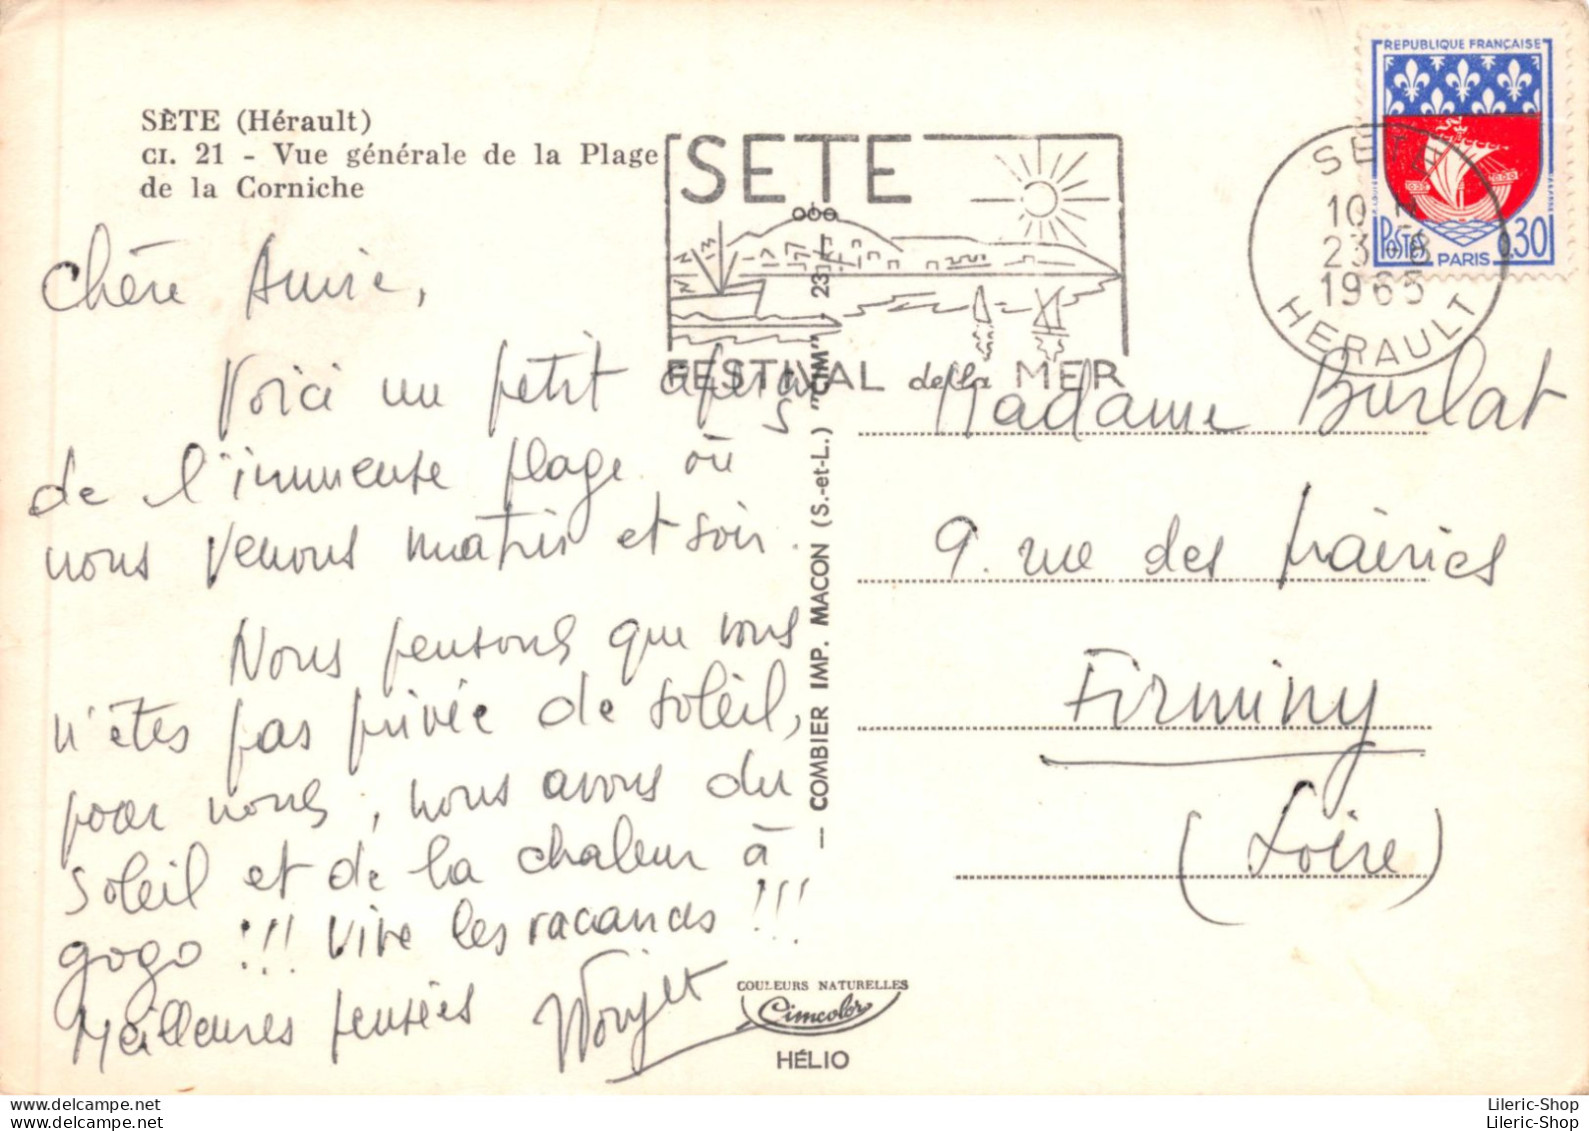 SÈTE (Hérault)
CI. 21 - Vue générale de la Plage
de la Corniche
REPUBLIQUE FRANÇAISE
POSTES
0,30
PARIS
SETE
FESTIVAL de la MER
SETE
10 H
23-8
1965
HERAULT
Chère Amie,
Voici un petit aperçu
de l'immense plage où
nous venons matin et soir.
Nous pensons que vous
n'êtes pas privée de soleil,
pour nous, nous avons du
soleil et de la chaleur à
gogo !!! Vive les vacances !!!
Meilleures pensées
— COMBIER IMP. MACON (S.-et-L.) "CIM" 23
Madame Burlat
9. rue des prairies
Firminy
(Loire)
COULEURS NATURELLES
Cimcolor
HÉLIO
Lileric-Shop
Lileric-Shop
Lileric-Shop
Lileric-Shop